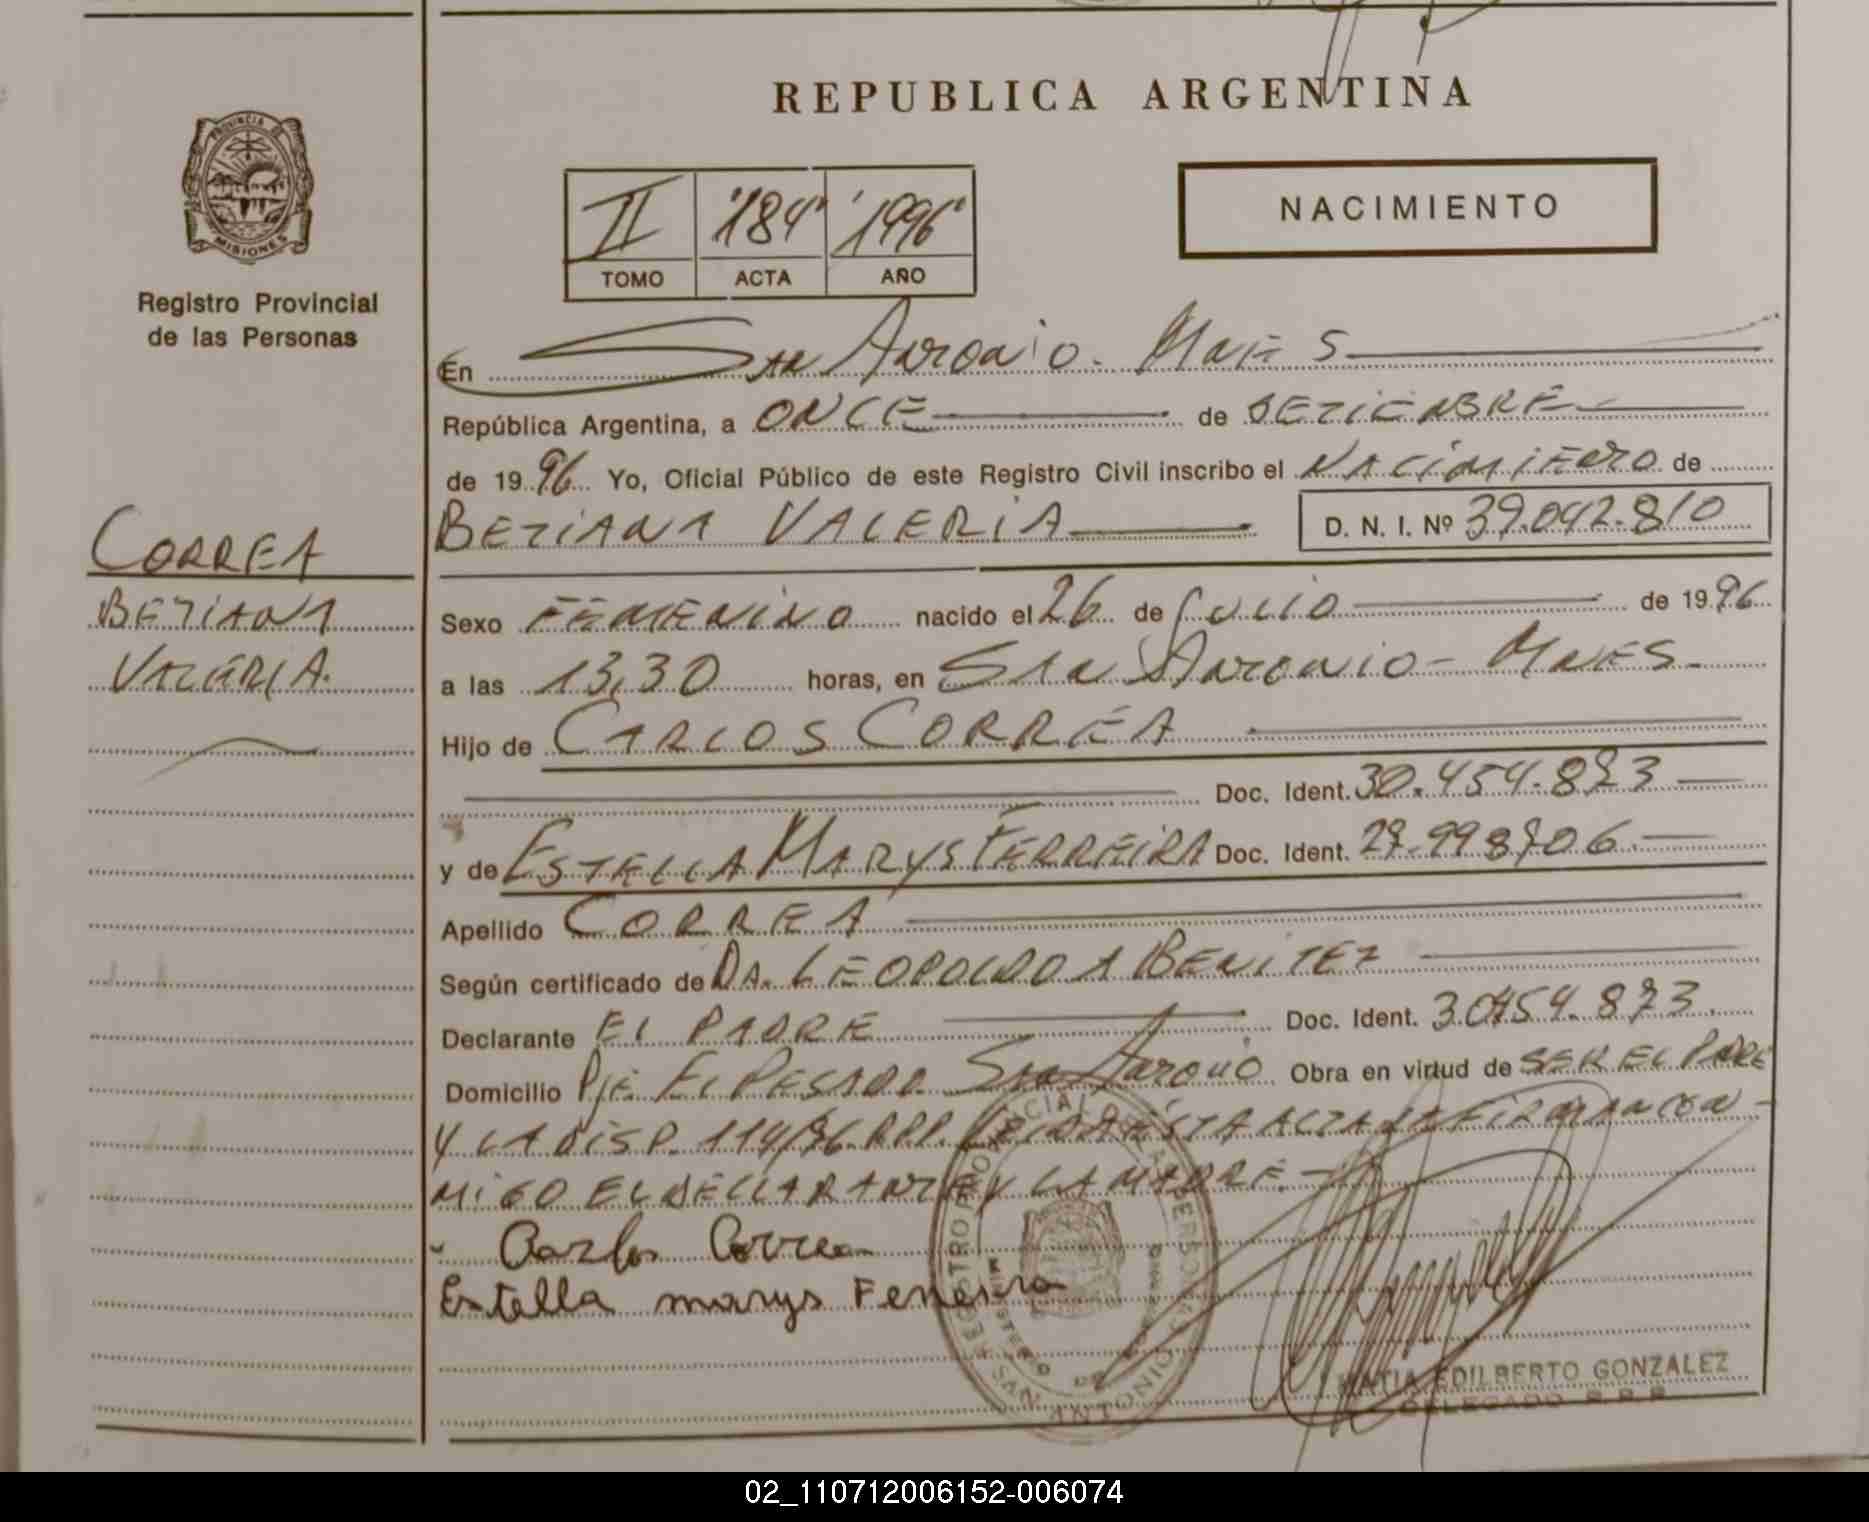 REPUBLICA ARGENTINA
PROVINCIA DE
MISIONES
Registro Provincial
de las Personas
II "184" "1996"
TOMO ACTA AÑO
NACIMIENTO
En San Antonio - Mnes
República Argentina, a ONCE de SETIEMBRE
de 1996 Yo, Oficial Público de este Registro Civil inscribo el NACIMIENTO de
BETIANA VALERIA D. N. I. Nº 39.042.810
CORREA
BETIANA
VALERIA.
Sexo FEMENINO nacido el 26 de Julio de 1996
a las 13,30 horas, en San Antonio - Mnes
Hijo de CARLOS CORREA
Doc. Ident. 30.454.873
y de ESTELLA MARYS FERREIRA Doc. Ident. 27.998706
Apellido CORREA
Según certificado de DR. LEOPOLDO A BENITEZ
Declarante EL PADRE Doc. Ident. 30454.873
Domicilio Pje. EL PESADO San Antonio Obra en virtud de SER EL PADRE
Y LA DISP. 114/96 RPP. LEIDA ESTA ACTA LA FIRMAN CON-
MIGO EL DECLARANTE Y LA MADRE.-
Carlos Correa
Estella marys Ferreira
REGISTRO PROVINCIAL DE LAS PERSONAS
MINISTERIO DE GOBIERNO
SAN ANTONIO
MATIA EDILBERTO GONZALEZ
DELEGADO R.P.P.
02_110712006152-006074